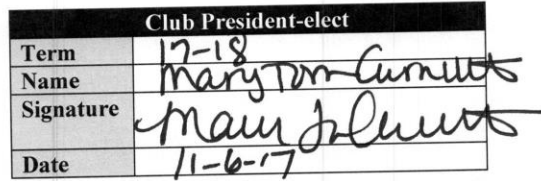 Club President-elect
Term 17-18
Name Mary Tom
Signature
Date 11-6-17